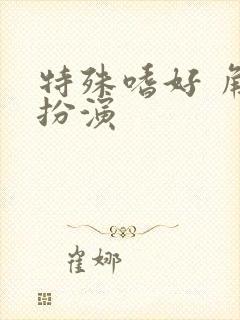 特殊嗜好 角
扮演
崔娜